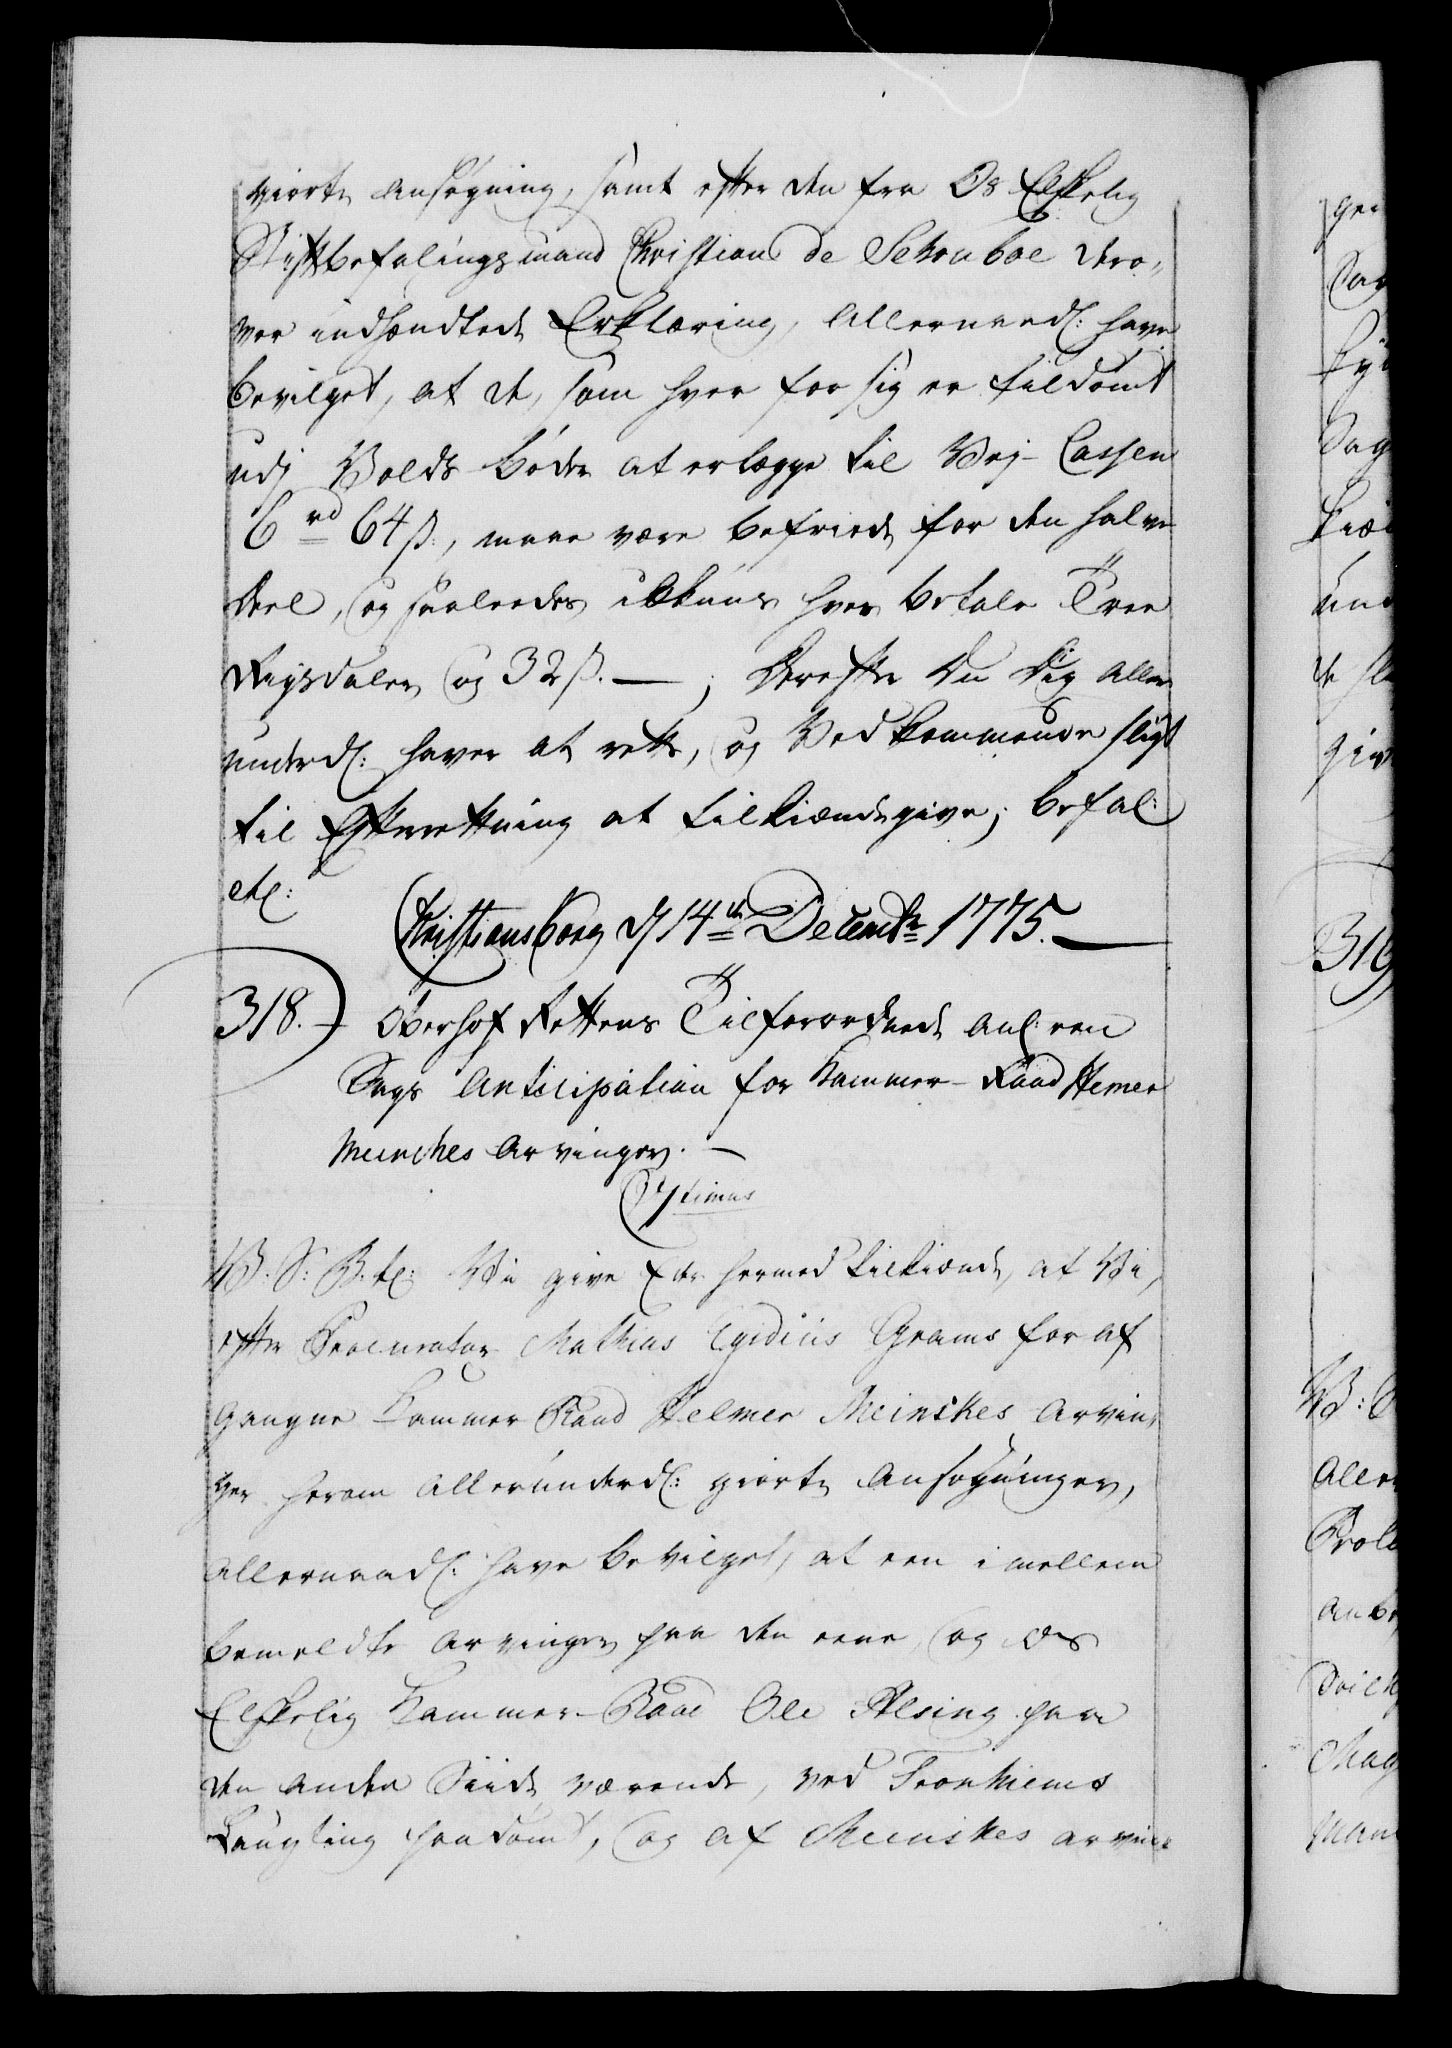 giorte Ansøgning, samt efter den fra Os Elskelig
Stiftbefalingsmand Christian de Schouboe dero„
ver indsendtede Erklæring, Allernaadl: have
bevilget, at de, som hver for sig er tildømt
udj Volds bøder at erlægge til Vej-Cassen
6 rd 64 s:, maae være befriede for den halve
Deel, og saaledes ikkuns hver betale Tree
Rigsdaler og 32 s. — ; Derefter Du dig aller
underd: haver at rette, og Vedkommende sligt
til Efterretning at tilkiendegive; befal:
etc:
Christiansborg d 14de Decembr 1775. —
318.) Oberhof Rettens Tilforordnede anl: een
Sags Anticipation for Kammer-Raad Hemer
Munches Arvinger. —
V: S: G. tc: Vi give Eder hermed tilkiende, at Vi,
efter Procurator Mathias Egidius Grams for af
gangne Kammer Raad Helmer Meinckes Arvin„
ger herom Allerunderd: giorte Ansøgninger,
Allernaadl: have bevilget, at een imellem
bemeldte Arvinger paa den eene, og Os
Elskelig Kammer-Raad Ole Alsing paa
den anden Siide værende, ved Tronhiems
Laugting paadømt, og af Meinckes Arvin„